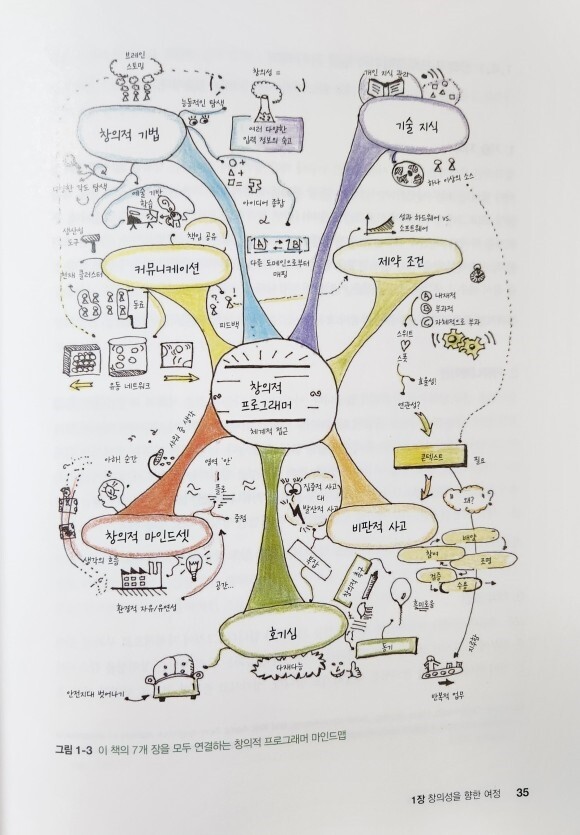 브레인
스토밍
창의적 기법
능동적인 탐색
창의성 =
여러 다양한
입력 정보의 숙고
개인 지식 관리
기술 지식
하나 이상의 소스
예술 기반
학습
아이디어 종합
A ↔ B
다른 도메인으로부터
매핑
생산성
도구
책임 공유
커뮤니케이션
천재 클러스터
동료
피드백
유동 네트워크
성과 하드웨어 vs.
소프트웨어
제약 조건
A 내재적
B 부과적
C 자체적으로 부과
스위트
스폿
효율성!
연관성?
창의적
프로그래머
체계적 접근
콘텍스트
필터
왜?
샤워 중 생각
아하! 순간
영역 '안'
플로
중점
창의적 마인드셋
생각의 흐름
환경적 자유/유연성
공간...
집중적 사고
대
발산적 사고
비판적 사고
배양
참여
조명
검증
수용
창의적 욕구
흥미로움
동기
호기심
다재다능
안전지대 벗어나기
반복적 업무
그림 1-3 이 책의 7개 장을 모두 연결하는 창의적 프로그래머 마인드맵
1장 창의성을 향한 여정 35